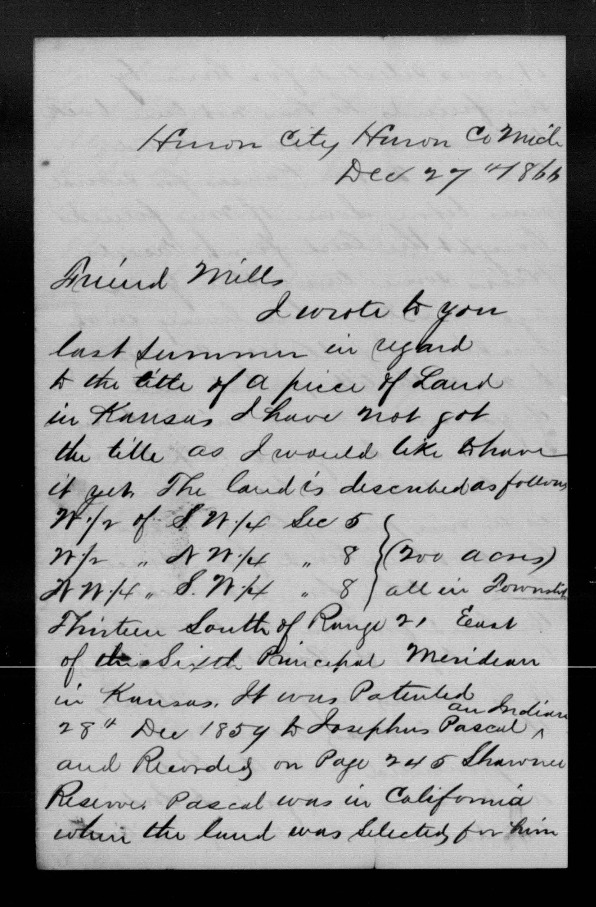 Huron City, Huron Co Mich
Dec 27th 1866
Friend Mills
I wrote to you
last summer in regard
to the title of a piece of Land
in Kansas I have not got
the title as I would like to have
it yet. The land is described as follows
W. 1/2 of S W. 1/4 Sec 5
W 1/2 " N W. 1/4 " 8 (200 acres)
N W. 1/4 " S. W. 1/4 " 8 all in Township
Thirteen South of Range 21 East
of the Sixth Principal Meridian
in Kansas. It was Patented
28th Dec 1859 to Josephus Pascal ^ an Indian
and Recorded, on Page 245 Shawnee
Reserve. Pascal was in California
when the land was Selected, for him